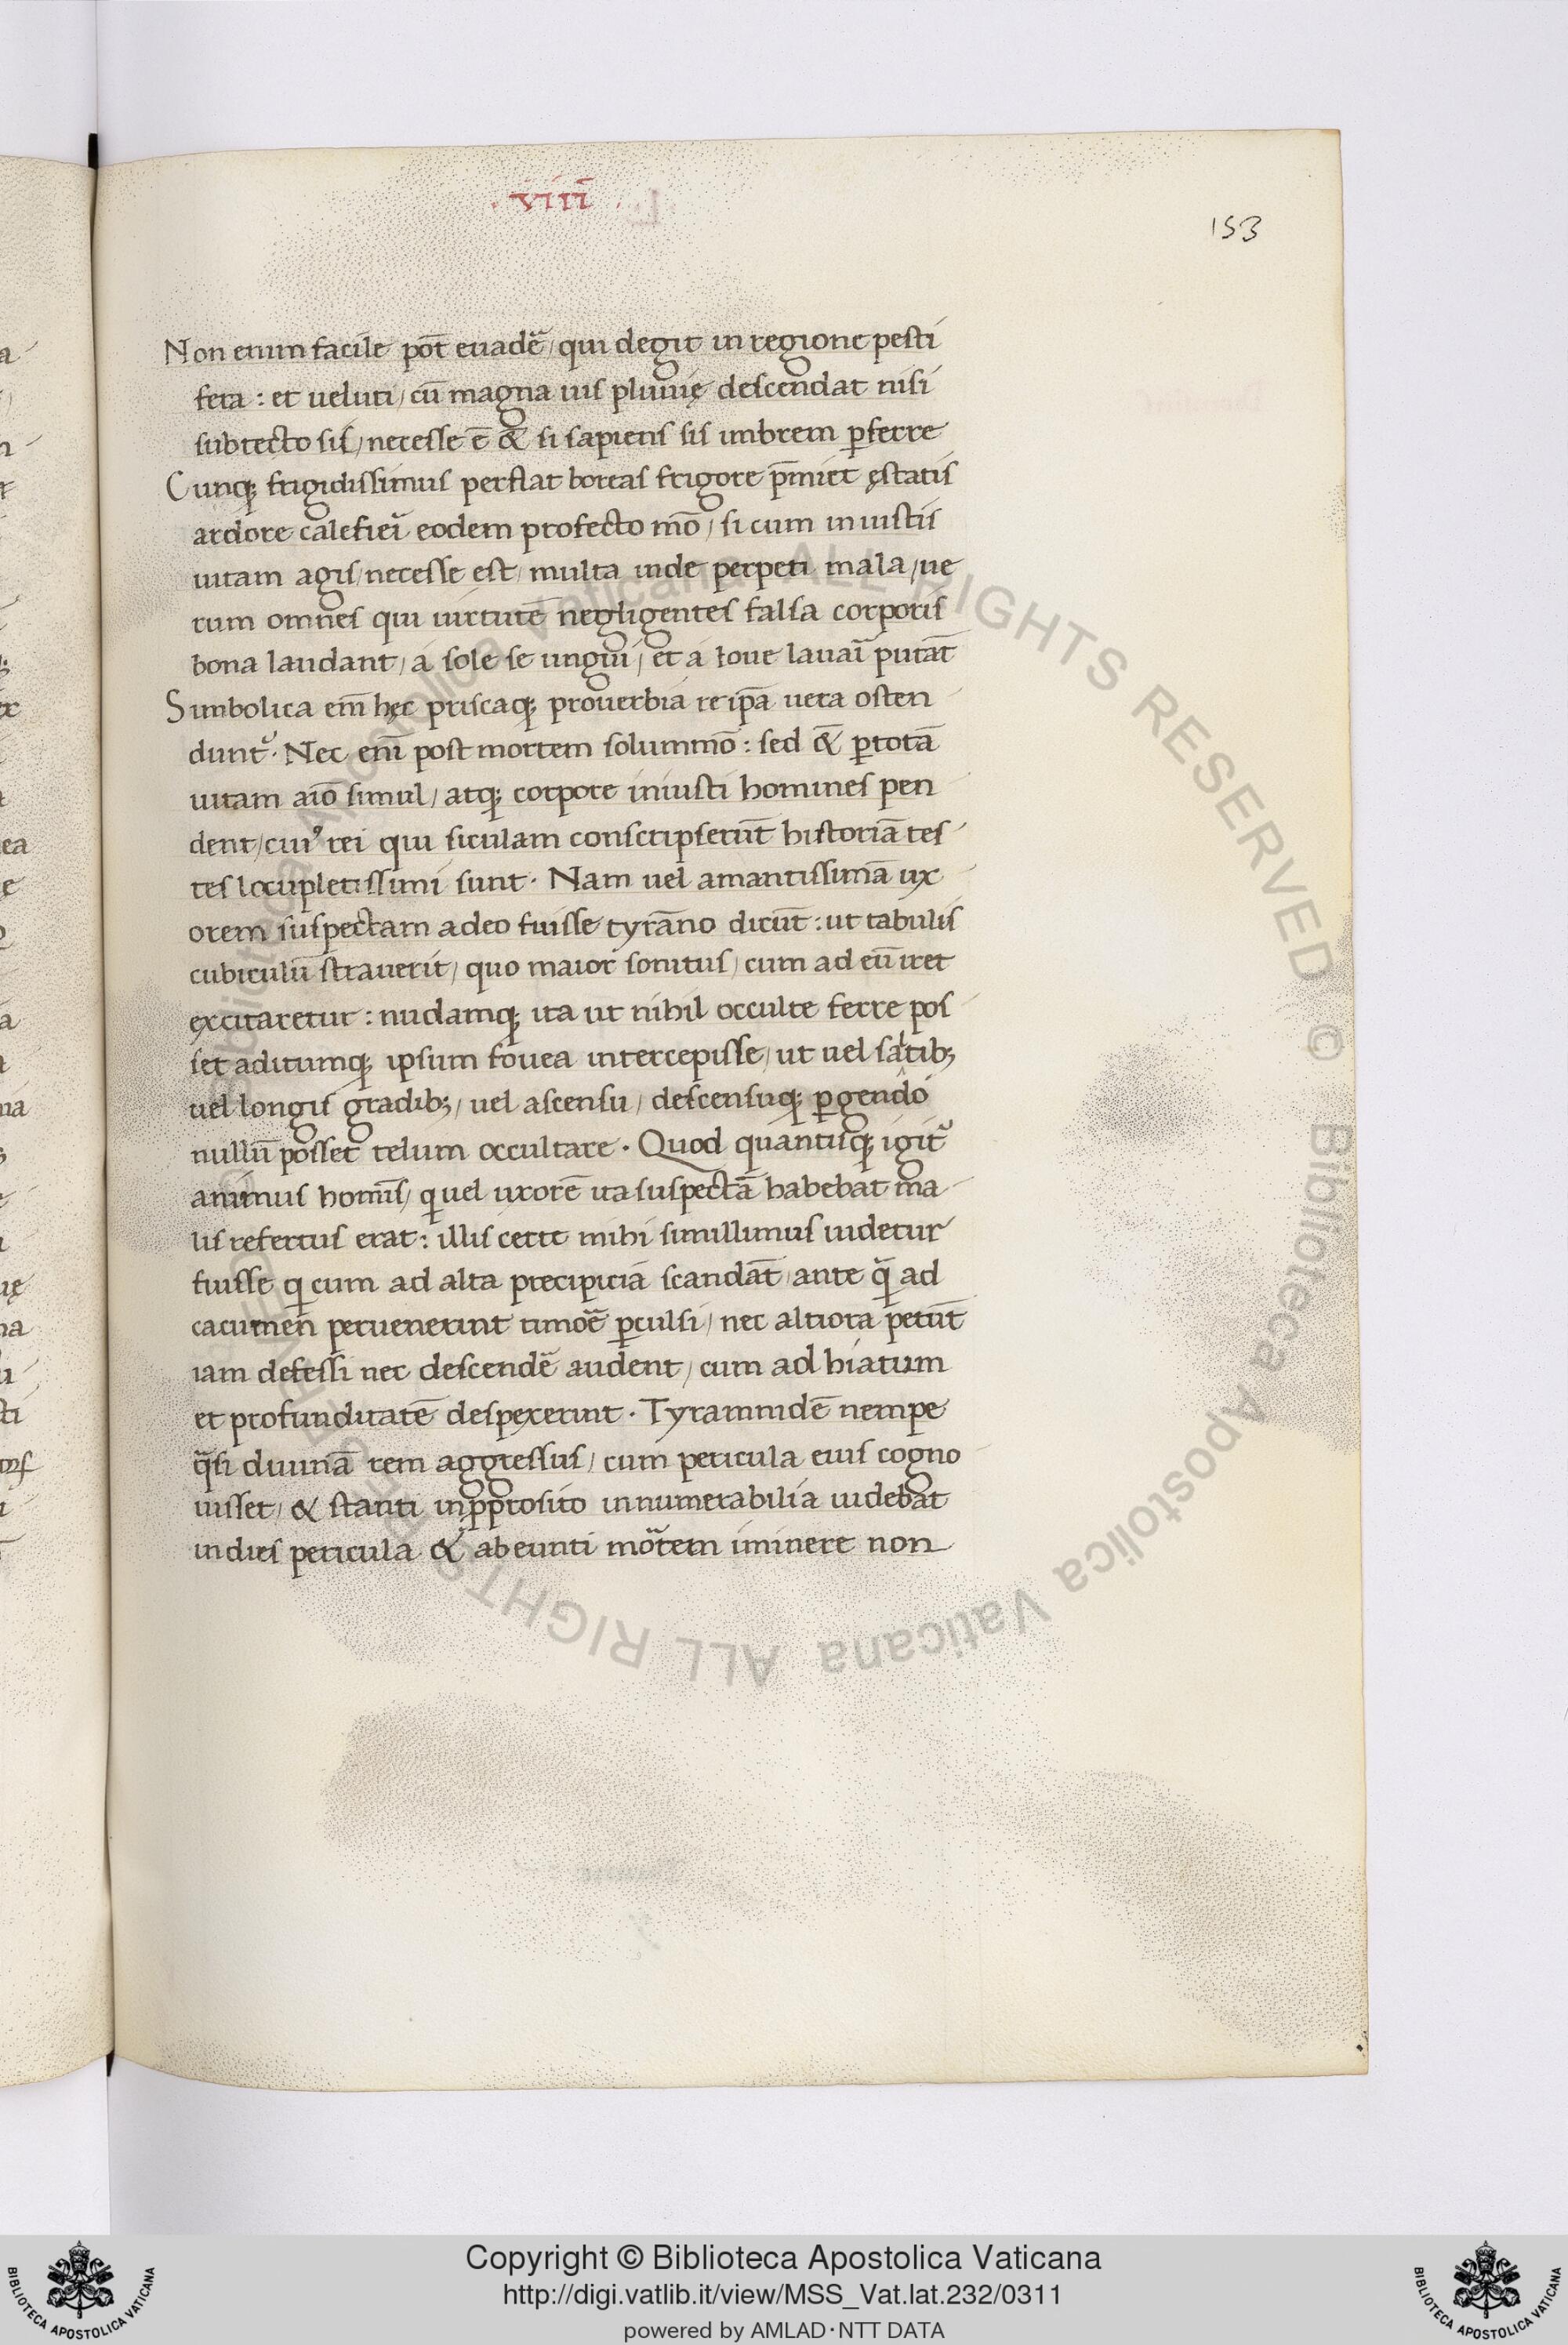 · viii ·
153
Non enim facile pōt euadē / qui degit in regione pesti
fera : et ueluti / cū magna uis pluuię descendat nisi
subtecto sis / necesse ē & si sapiens sis imbrem ꝑferre
Cunqꝫ frigidissimus perflat boreas frigore p̄miet ęstatis
ardore calefieri eodem profecto mō / si cum iniustis
uitam agis / necesse est / multa inde perpeti mala / ue
rum omnes qui uirtutē negligentes falsa corporis
bona laudant / a sole se ungui / et a Ioue lauari putāt
Simbolica em̄ hęc priscaqꝫ prouerbia re ip̄a uera osten
dunt᷑ · Nec eni᷑ post mortem solummō : sed & ꝑtotā
uitam aīo simul / atqꝫ corpore iniusti homines pen
dent / cuiꝰ rei qui siculam conscripserūt historiā tes
tes locupletissimi sunt · Nam uel amantissimā ux
orem suspectam adeo fuisse tyrāno dicūt : ut tabulis
cubiculū strauerit / quo maior sonitus / cum ad eū iret
excitaretur : nudamqꝫ ita ut nihil occulte ferre pos
set aditumqꝫ ipsum fouea intercepisse / ut uel saltibꝫ
uel longis gradibꝫ / uel ascensu / descensuqꝫ ꝑgendo
nullū posset telum occultare · Quod quantisqꝫ igit᷑
animus homīs / qui uel uxorē ita suspectā habebat ma
lis refertus erat : illis certe mihi simillimus uidetur
fuisse qui cum ad alta precipicia scandāt / ante qᷓ ad
cacumen peruenerint timoē ꝑculsi / nec altiora petūt
iam defessi nec descendē audent / cum ad hiatum
et profunditatē despexerint · Tyrannidē nempe
qᷓsi diuinā rem aggressus / cum pericula eius cogno
uisset / & stanti in ꝓposito innumerabilia uidebat
indies pericula & abeunti moᷓtem iminere non
Copyright © Biblioteca Apostolica Vaticana
http://digi.vatlib.it/view/MSS_Vat.lat.232/0311
powered by AMLAD·NTT DATA